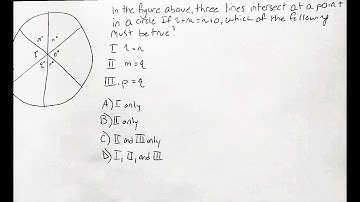 In the figure above, three lines intersect at a point
in a circle If
which of the following
must be true?
I
II m=q
III p=q
A) I only
B) II only
C) II and III only
D) I, II, and III